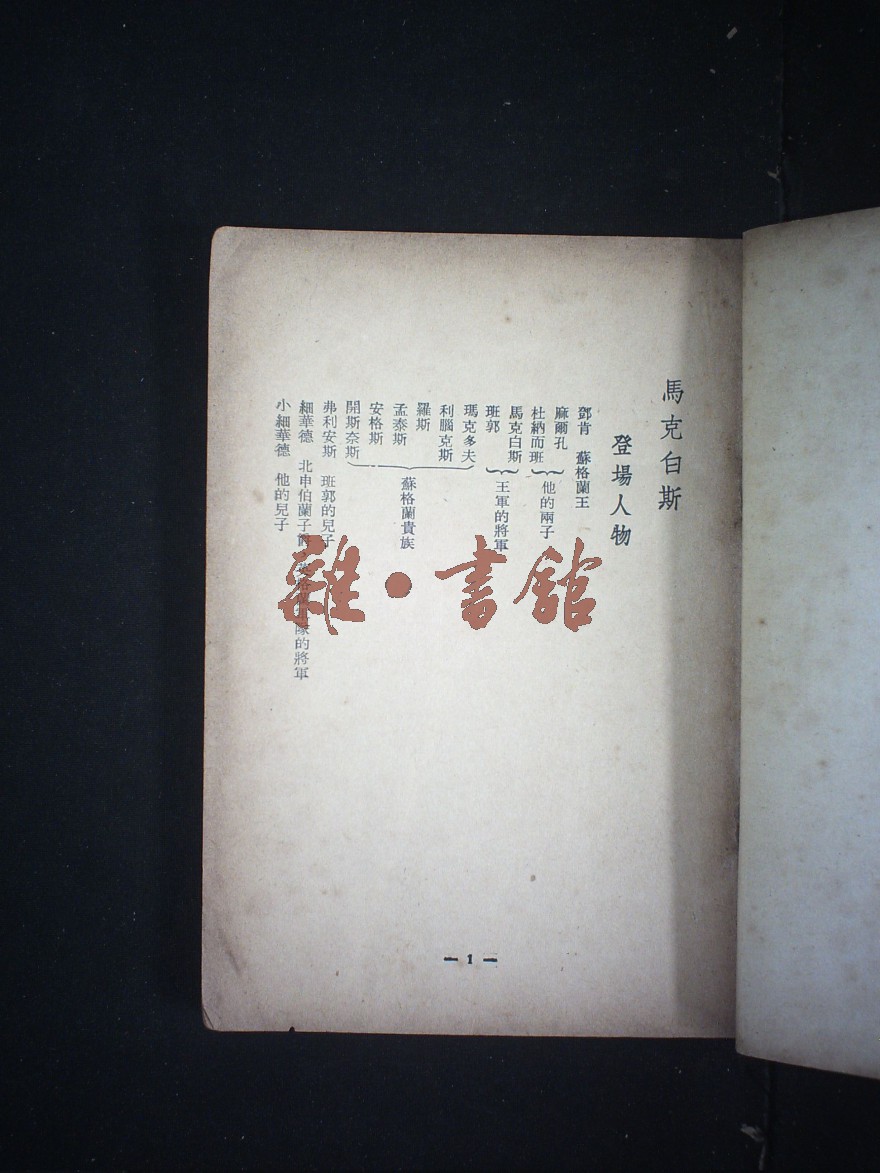 馬克白斯
登場人物
鄧肯 蘇格蘭王
麻爾孔
杜納而班
他的兩子
馬克白斯
班郭
王軍的將軍
瑪克多夫
利腦克斯
羅斯
孟泰斯
安格斯
開斯奈斯
蘇格蘭貴族
弗利安斯 班郭的兒子
細華德 北申伯蘭子爵 英格蘭軍隊的將軍
小細華德 他的兒子
— 1 —
雜·書館